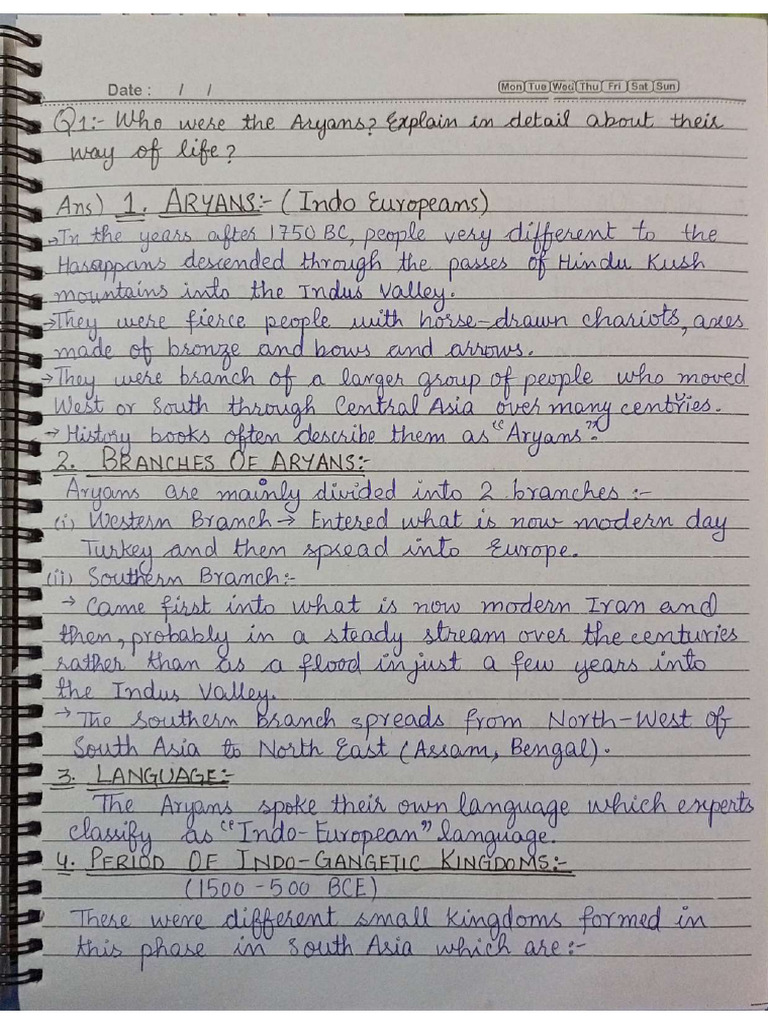 Date : / /
Mon Tue Wed Thu Fri Sat Sun
Q1:- Who were the Aryans? Explain in detail about their
way of life?
Ans) 1. ARYANS:- (Indo Europeans)
→In the years after 1750 BC, people very different to the
Harappans descended through the passes of Hindu Kush
mountains into the Indus Valley.
→They were fierce people with horse-drawn chariots, axes
made of bronze and bows and arrows.
→They were branch of a larger group of people who moved
West or South through Central Asia over many centuries.
→ History books often describe them as "Aryans".
2. BRANCHES OF ARYANS:-
Aryans are mainly divided into 2 branches :-
(i) Western Branch → Entered what is now modern day
Turkey and them spread into Europe.
(ii) Southern Branch:-
→ Came first into what is now modern Iran and
then, probably in a steady stream over the centuries
rather than as a flood in just a few years into
the Indus Valley.
→ The Southern Branch spreads from North-West of
South Asia to North East (Assam, Bengal).
3. LANGUAGE:-
The Aryans spoke their own language which experts
classify as "Indo-European" language.
4. PERIOD OF INDO-GANGETIC KINGDOMS:-
(1500 -500 BCE)
There were different small kingdoms formed in
this phase in South Asia which are:-